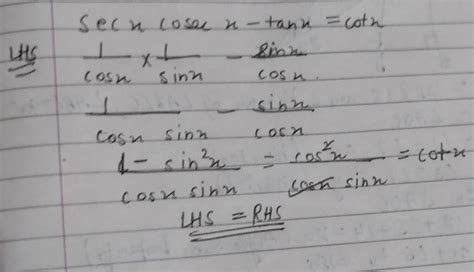 sec x cosec x - tan x = cot x
LHS 1/cos x × 1/sin x - sin x/cos x
1/cos x sin x - sin x/cos x
1 - sin²x/cos x sin x = cos²x/cos x sin x = cot x
LHS = RHS